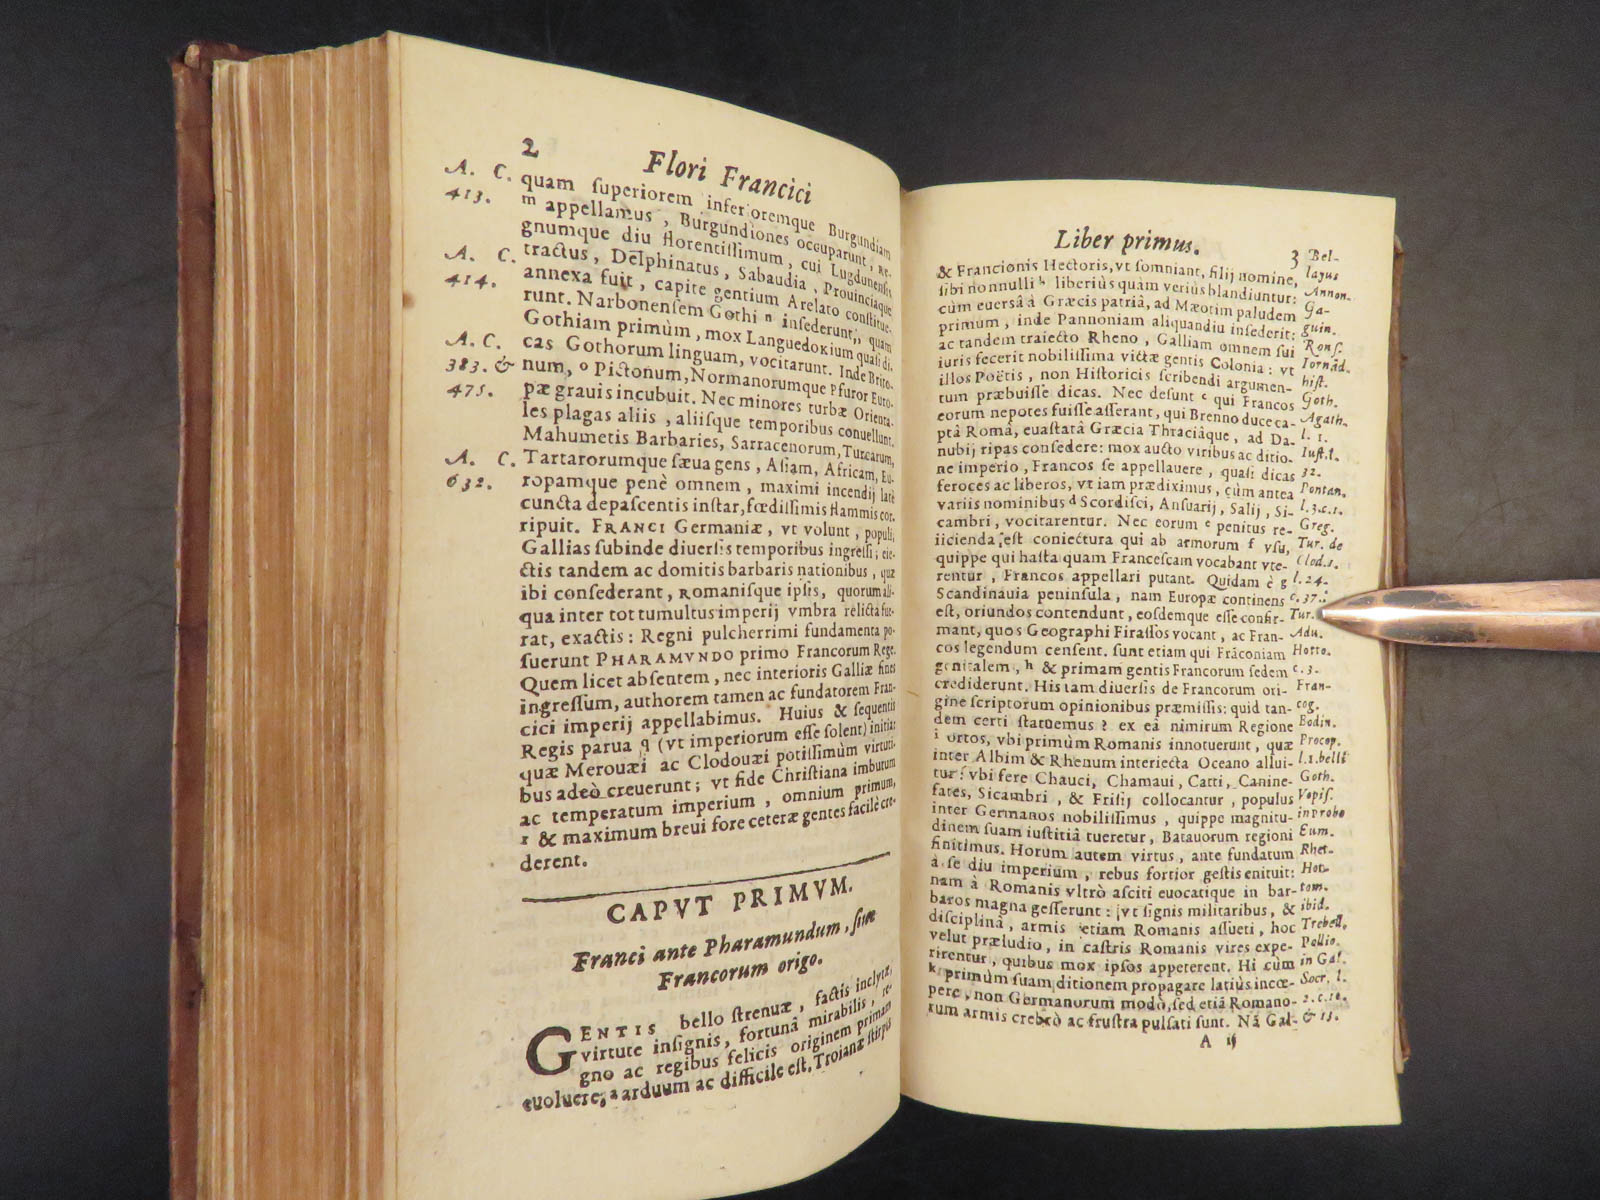 2 Flori Francici
A. C. quam ſuperiorem inferioremque Burgundiam
413. m appellamus, Burgundiones occuparunt, Re-
gnumque diu florentiſſimum, cui Lugdunenſis
A. C. tractus, Delphinatus, Sabaudia, Prouinciaque
414. annexa fuit, capite gentium Arelato conſtitue-
runt. Narbonenſem Gothi n inſederunt, quam
A. C. Gothiam primùm, mox Languedoкium quaſi di-
383. & cas Gothorum linguam, vocitarunt. Inde Brito-
475. num, o Pictonum, Normanorumque p furor Euro-
pæ grauis incubuit. Nec minores turbæ Orienta-
les plagas aliis, aliiſque temporibus conuellunt.
Mahumetis Barbaries, Sarracenorum, Turcarum,
A. C. Tartarorumque ſæua gens, Aſiam, Africam, Eu-
632. ropamque penè omnem, maximi incendij latè
cuncta depaſcentis inſtar, fœdiſſimis flammis cor-
ripuit. FRANCI Germaniæ, vt volunt, populi,
Gallias ſubinde diuerſis temporibus ingreſſi; eie-
ctis tandem ac domitis barbaris nationibus, quæ
ibi conſederant, Romaniſque ipſis, quorum ali-
qua inter tot tumultus imperij vmbra relicta fue-
rat, exactis: Regni pulcherrimi fundamenta po-
ſuerunt PHARAMVNDO primo Francorum Rege.
Quem licet abſentem, nec interioris Galliæ fines
ingreſſum, authorem tamen ac fundatorem Fran-
cici imperij appellabimus. Huius & ſequentis
Regis parua q (vt imperiorum eſſe ſolent) initia
quæ Merouæi ac Clodouæi potiſſimùm virtuti-
bus adeò creuerunt; vt fide Chriſtiana imbutum
ac temperatum imperium, omnium primum,
r & maximum breui fore ceteræ gentes facilè cre-
derent.
CAPVT PRIMVM.
Franci ante Pharamundum, ſiue
Francorum origo.
GENTIS bello ſtrenuæ, factis inclytæ,
virtute inſignis, fortunâ mirabilis, re-
gno ac regibus felicis originem primam
euoluere, a arduum ac difficile eſt. Troianæ ſtirpis
Liber primus. 3
& Francionis Hectoris, vt ſomniant, filij nomine, Bel-
ſibi nonnulli b liberiùs quàm veriùs blandiuntur: lazus
cùm euerſâ à Græcis patriâ, ad Mæotim paludem Annon.
primum, inde Pannoniam aliquandiu inſederit: Ga-
ac tandem traiecto Rheno, Galliam omnem ſui guin.
iuris fecerit nobiliſſima victæ gentis Colonia: vt Ronſ.
illos Poëtis, non Hiſtoricis ſcribendi argumen- Iornãd.
tum præbuiſſe dicas. Nec deſunt c qui Francos hiſt.
eorum nepotes fuiſſe aſſerant, qui Brenno duce ca- Goth.
ptâ Româ, euaſtatâ Græcia Thraciâque, ad Da- Agath.
nubij ripas conſedere: mox aucto viribus ac ditio- l. 1.
ne imperio, Francos ſe appellauere, quaſi dicas Iuſt. l.
feroces ac liberos, vt iam prædiximus, cùm antea 32.
variis nominibus d Scordiſci, Anſuarij, Salij, Si- Pontan.
cambri, vocitarentur. Nec eorum e penitus re- l. 3. c. 1.
iicienda eſt coniectura qui ab armorum f vſu, Greg.
quippe qui haſta quam Franceſcam vocabant vte- Tur. de
rentur, Francos appellari putant. Quidam è g Clod. 1.
Scandinauia peninſula, nam Europæ continens l. 24.
eſt, oriundos contendunt, eoſdemque eſſe confir- c. 37.
mant, quos Geographi Firaſſos vocant, ac Fran- Tur.
cos legendum cenſent. ſunt etiam qui Frãconiam Adu.
genitalem, h & primam gentis Francorum ſedem Hotto.
crediderunt. His tam diuerſis de Francorum ori- c. 3.
gine ſcriptorum opinionibus præmiſſis: quid tan- Fran-
dem certi ſtatuemus? ex eâ nimirum Regione cog.
i ortos, vbi primùm Romanis innotuerunt, quæ Bodin.
inter Albim & Rhenum interiecta Oceano allui- Procop.
tur: vbi fere Chauci, Chamaui, Catti, Canine- l. 1. belli
fates, Sicambri, & Friſij collocantur, populus Goth.
inter Germanos nobiliſſimus, quippe magnitu- Vopiſ.
dinem ſuam iuſtitiâ tueretur, Batauorum regioni in probo
finitimus. Horum autem virtus, ante fundatum Eum.
à ſe diu imperium, rebus fortior geſtis enituit: Rhet-
nam à Romanis vltrò aſciti euocatique in bar- Hot-
baros magna geſſerunt: vt ſignis militaribus, & tom.
diſciplinâ, armis etiam Romanis aſſueti, hoc ibid.
velut præludio, in caſtris Romanis vires expe- Trebell.
rirentur, quibus mox ipſos appeterent. Hi cùm Pollio.
k primùm ſuam ditionem propagare latiùs incœ- in Gal.
pere, non Germanorum modò, ſed etiã Romano- Socr. l.
rum armis crebrò ac fruſtra pulſati ſunt. Nã Gal- 2. c. 10.
A ij & 13.